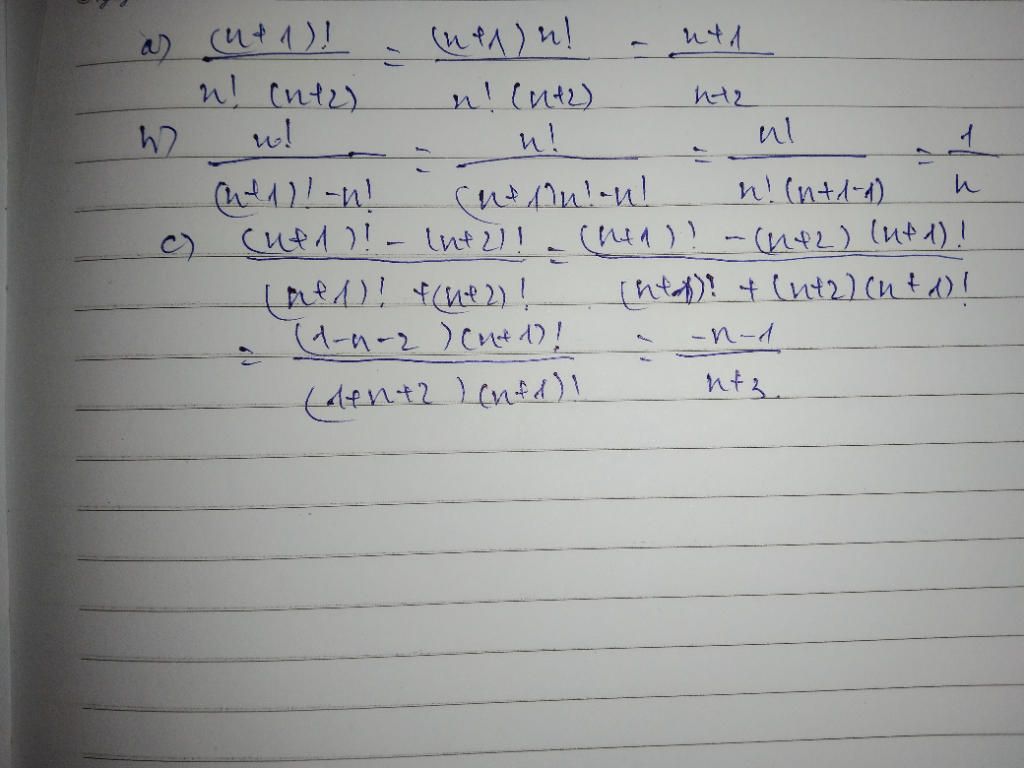 a) (n+1)! / n! (n+2) = (n+1) n! / n! (n+2) = n+1 / n+2
b) n! / (n+1)! - n! = n! / (n+1) n! - n! = n! / n! (n+1-1) = 1 / n
c) (n+1)! - (n+2)! / (n+1)! + (n+2)! = (n+1)! - (n+2) (n+1)! / (n+1)! + (n+2) (n+1)!
= (1-n-2) (n+1)! / (1+n+2) (n+1)! = -n-1 / n+3.